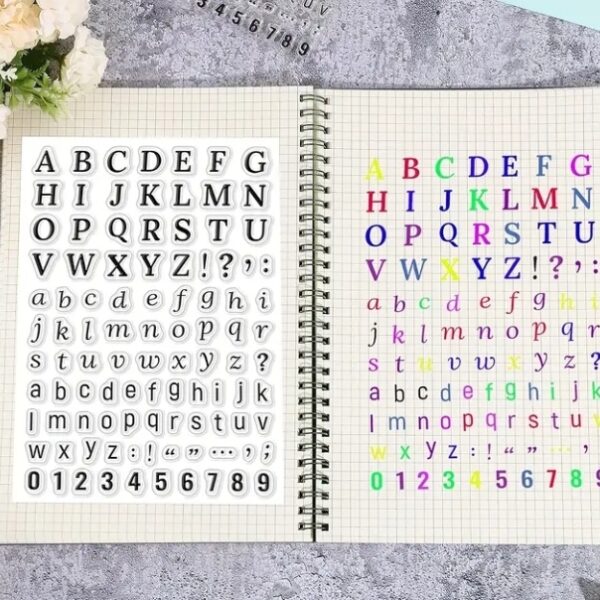 u v
3 4 5 6 7 8 9
A B C D E F G
H I J K L M N
O P Q R S T U
V W X Y Z ! ? ’ :
a b c d e f g h i
j k l m n o p q r
s t u v w x y z ?
a b c d e f g h i j k
l m n o p q r s t u v
w x y z : ! “ ” … , ;
0 1 2 3 4 5 6 7 8 9
A B C D E F G
H I J K L M N
O P Q R S T U
V W X Y Z ! ? ’ :
a b c d e f g h i
j k l m n o p q r
s t u v w x y z ?
a b c d e f g h i j k
l m n o p q r s t u
w x y z : ! “ ” … ’
0 1 2 3 4 5 6 7 8 9